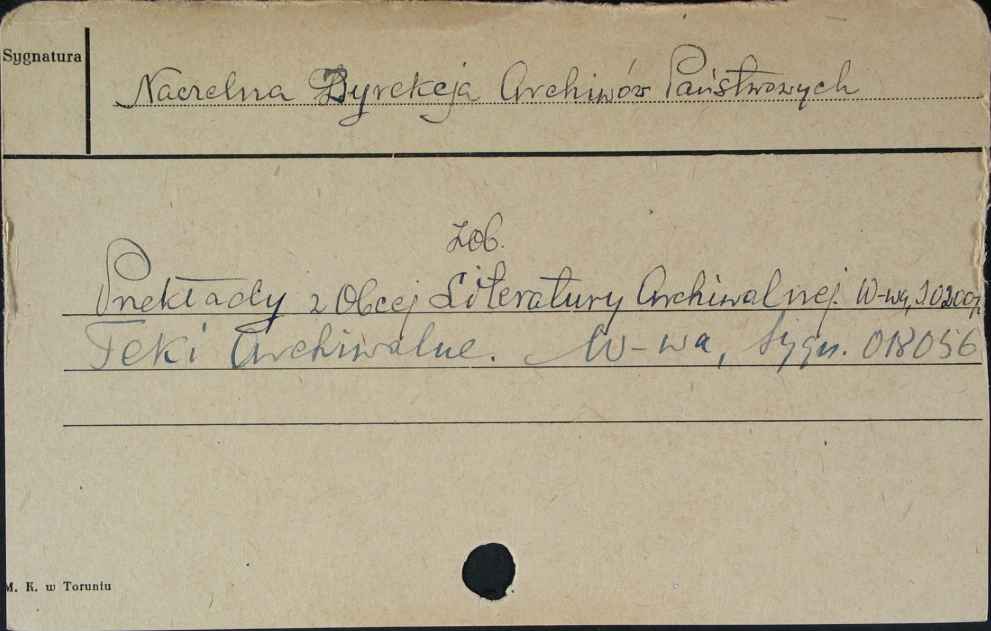 Sygnatura
Naczelna Dyrekcja Archiwów Państwowych
zob.
Przekłady z Obcej Literatury Archiwalnej. W-wa,
Teki Archiwalne. W-wa, Sygn. 018056
M. K. w Toruniu